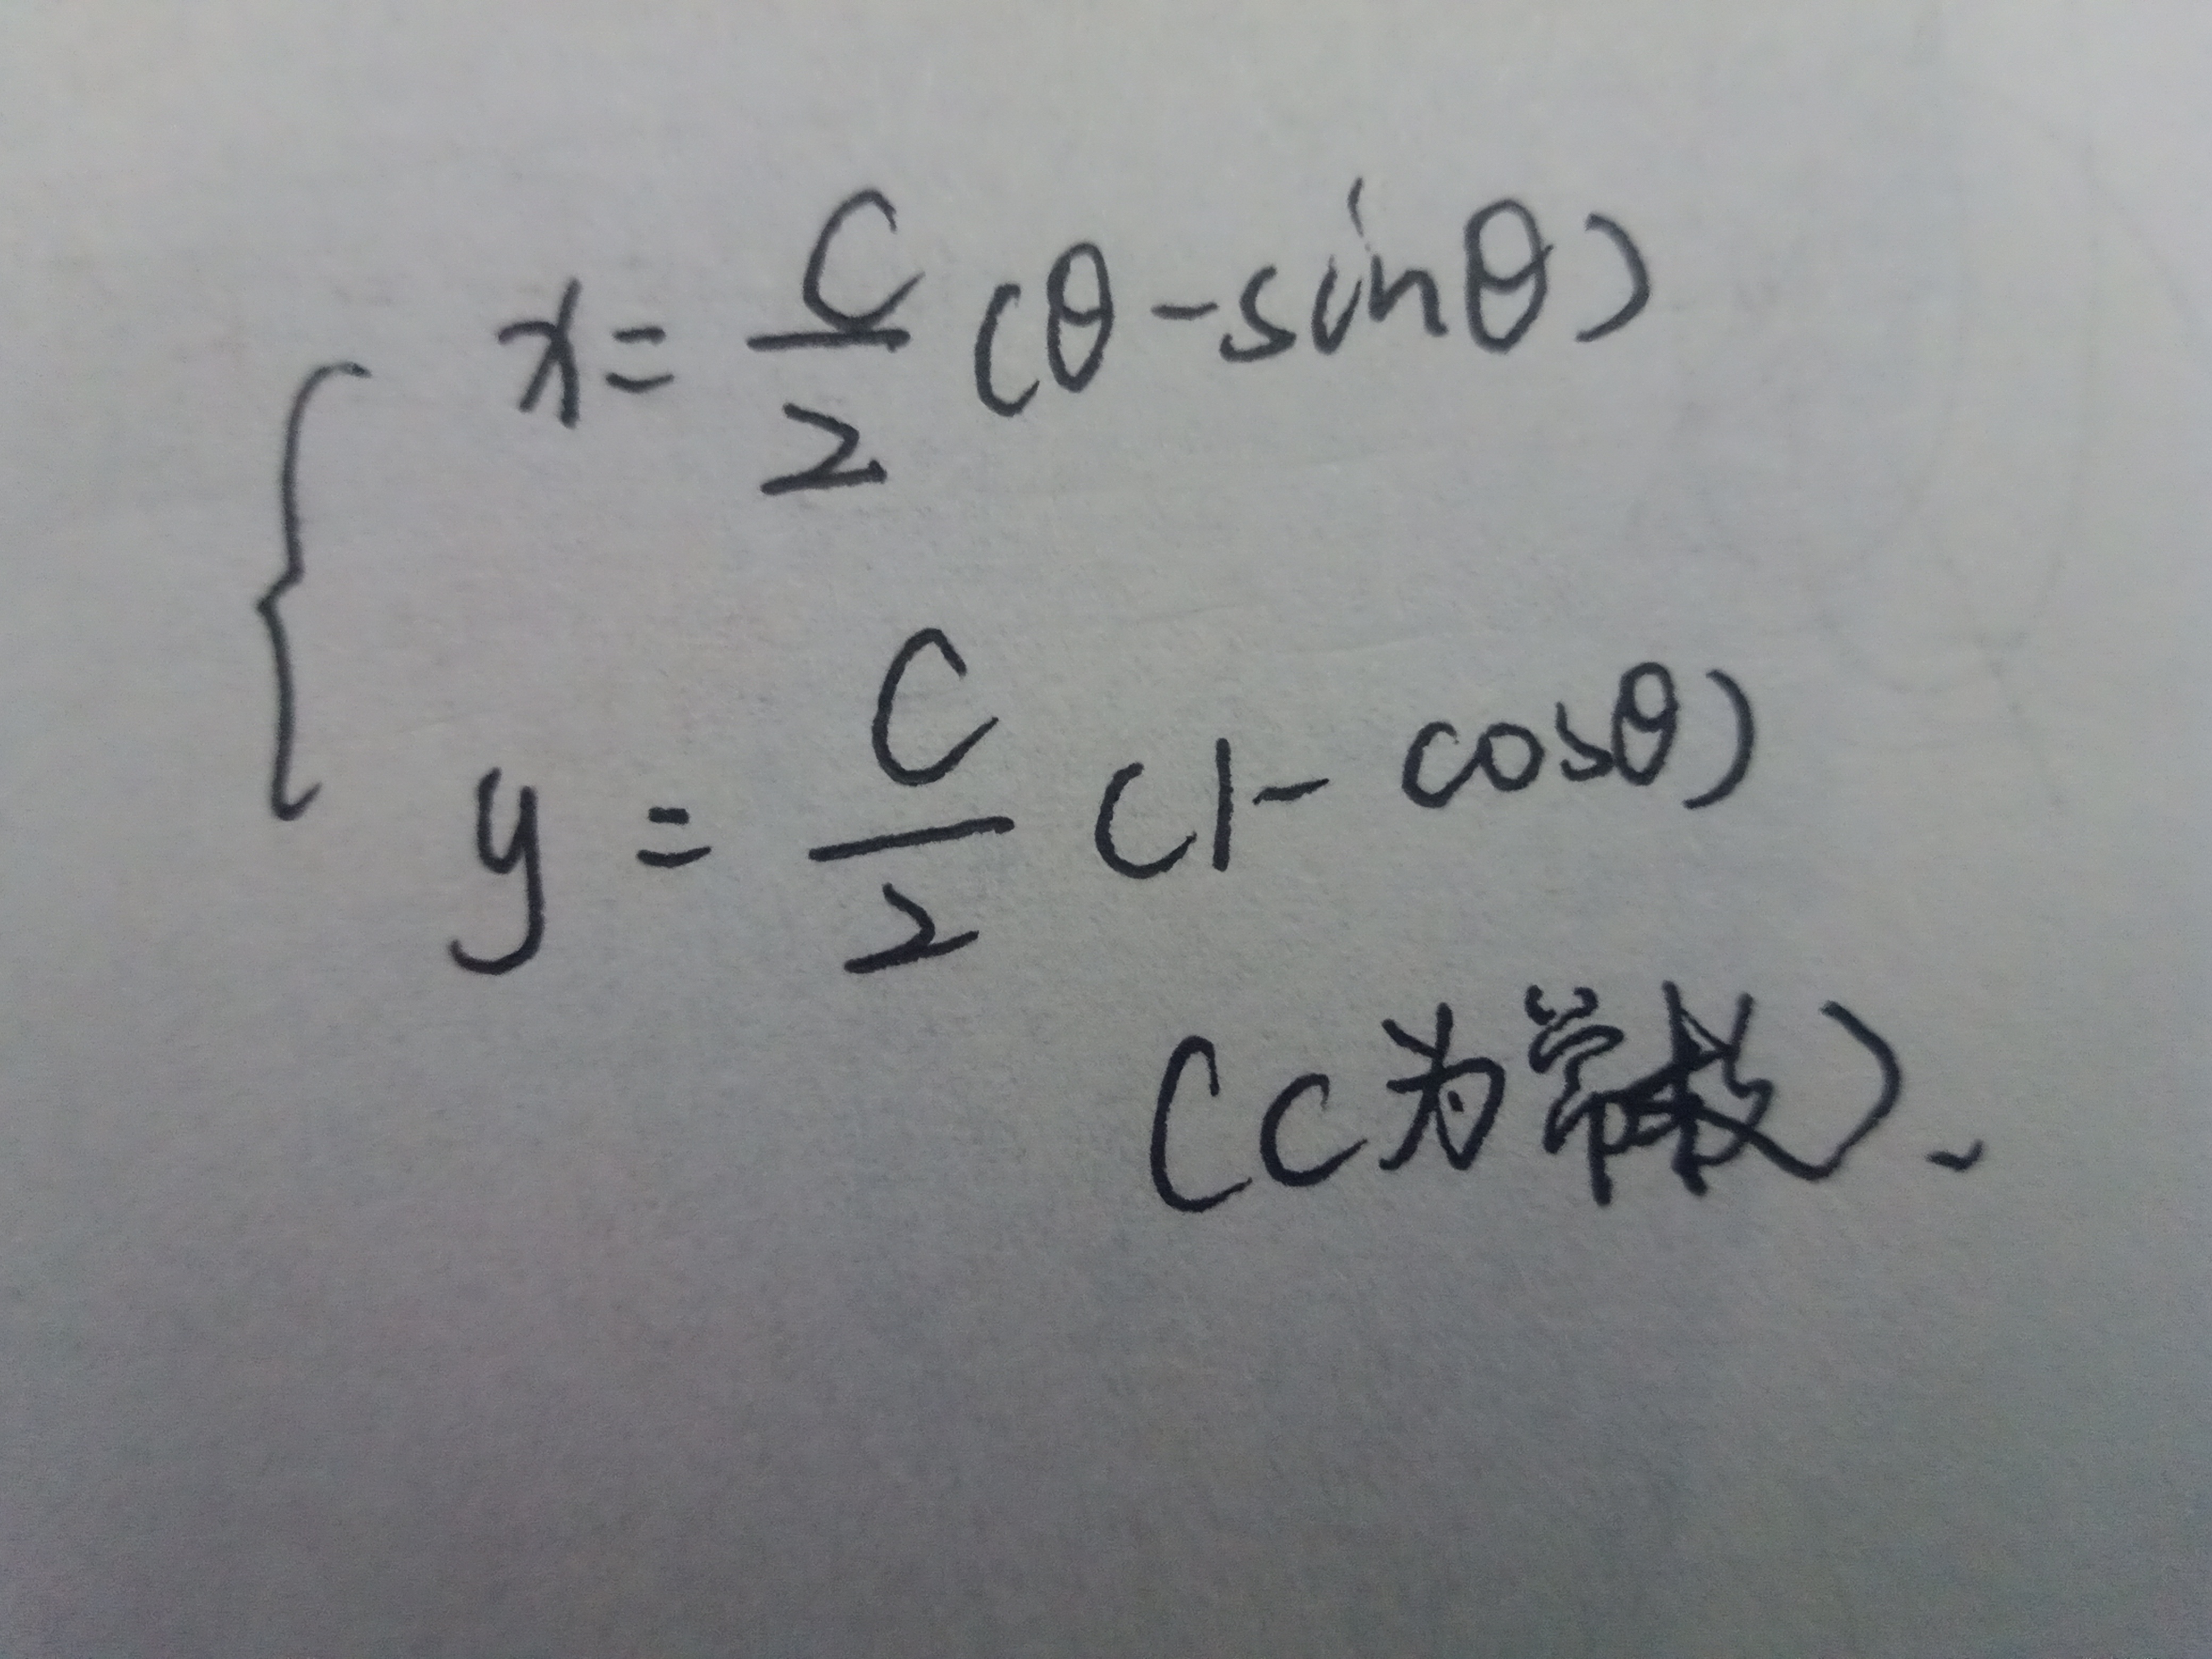 x = C/2 (θ - sinθ)
y = C/2 (1 - cosθ)
(C为常数).